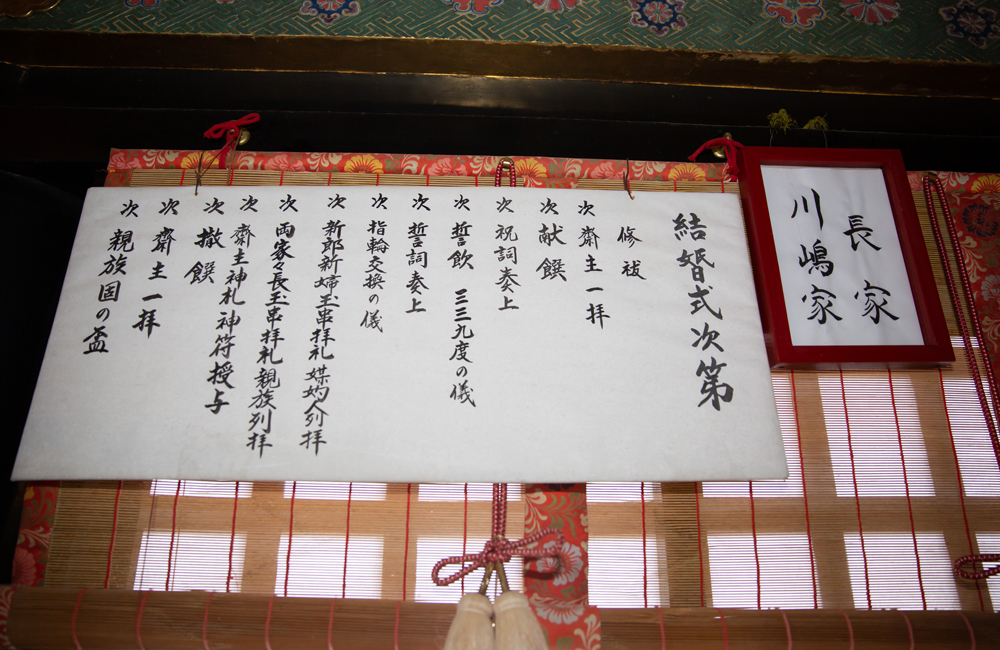 長家
川嶋家
結婚式次第
修祓
次 齋主一拝
次 献饌
次 祝詞奏上
次 誓飲 三三九度の儀
次 誓詞奏上
次 指輪交換の儀
次 新郎新婦玉串拝礼 媒妁人列拝
次 両家々長玉串拝礼 親族列拝
次 齋主神札神符授与
次 撤饌
次 齋主一拝
次 親族固の盃